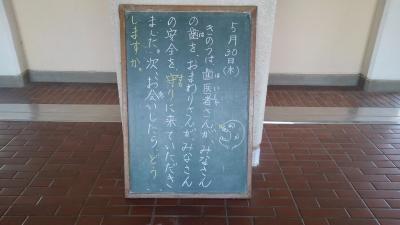 ５月３０日（木）
きのうは、歯医者さんが、みなさん
の歯を、おまわりさんがみなさん
の安全を、守りに来ていただき
ました。次、お会いしたら、どう
しますか。